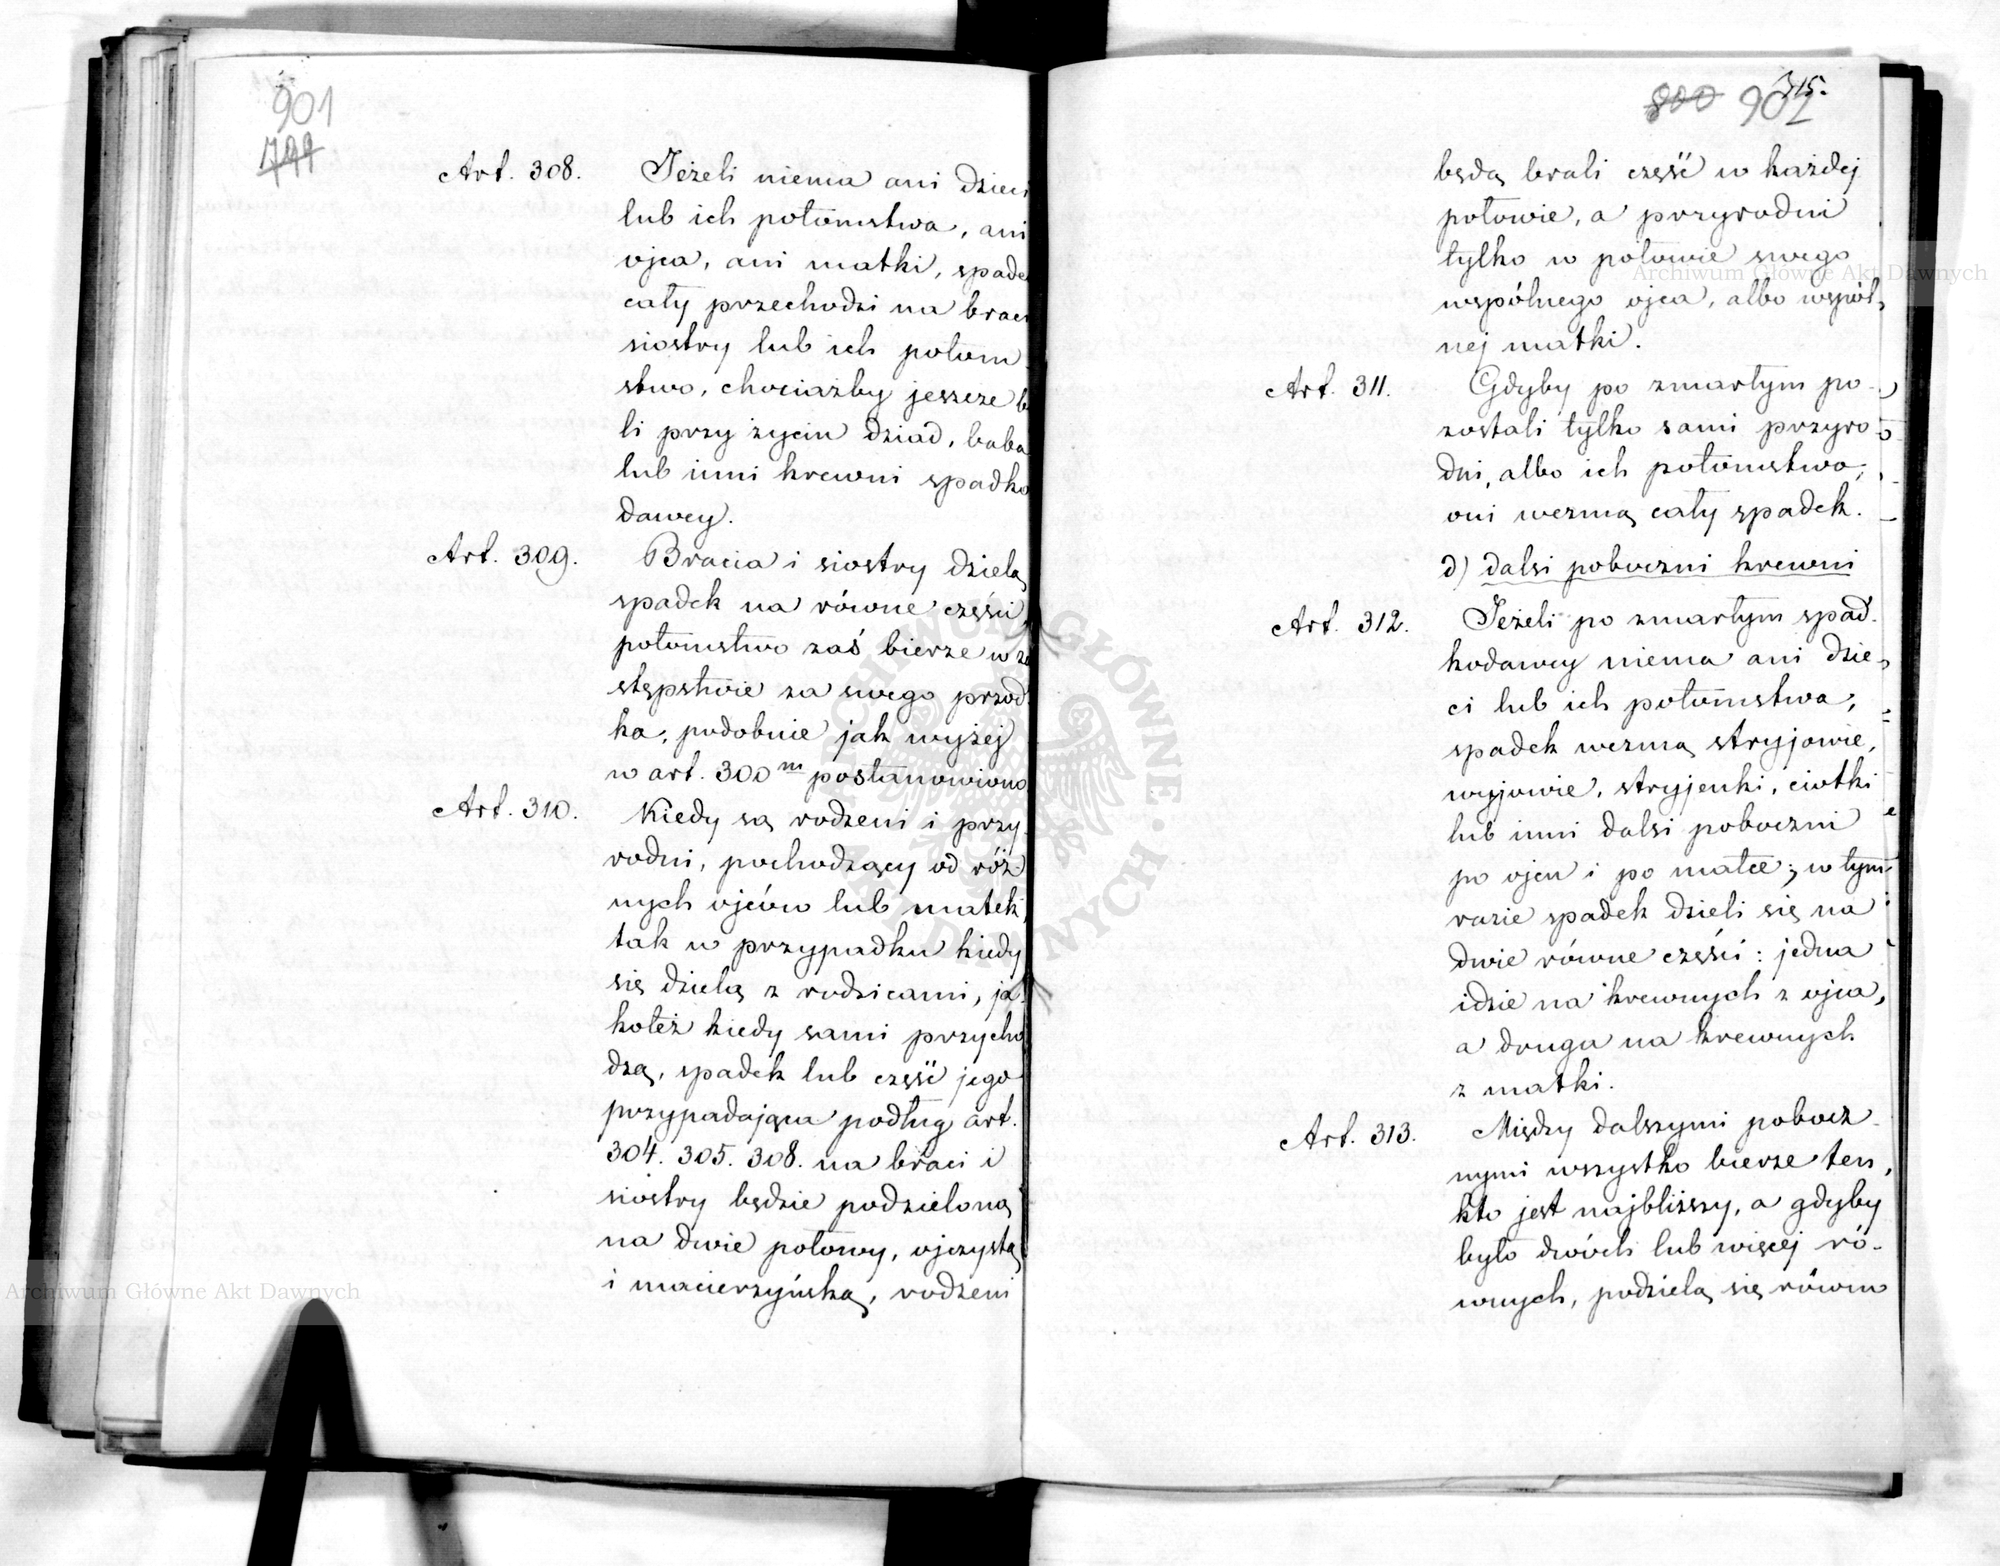 901
799
Art. 308. Jeżeli niema ani dzieci
lub ich potomstwa, ani
ojca, ani matki, spade
cały przechodzi na brac
siostry lub ich potom
stwo, chociażby jeszcze b
li przy życiu dziad, baba
lub inni krewni spadko
dawcy.
Art. 309. Bracia i siostry dzielą
spadek na równe części,
potomstwo zaś bierze w za
stępstwie za swego przod
ka, podobnie jak wyżej
w art. 300m postanowiono.
Art. 310. Kiedy są rodzeni i przy
rodni, pochodzący od róż
nych ojców lub matek,
tak w przypadku kiedy
się dzielą z rodzicami, ja
koteż kiedy sami przycho
dzą, spadek lub część jego
przypadająca podług art.
304. 305. 308. na braci i
siostry będzie podzieloną
na dwie połowy, ojczystą
i macierzyńską, rodzeni
315.
800 902
będą brali część w każdej
połowie, a przyrodni
tylko w połowie swego
wspólnego ojca, albo wspól-
nej matki.
Art. 311. Gdyby po zmarłym po-
zostali tylko sami przyro
dni, albo ich potomstwo,
oni wezmą cały spadek.
d) dalsi poboczni krewni
Art. 312. Jeżeli po zmarłym spad-
kodawcy niema ani dzie-
ci lub ich potomstwa,
spadek wezmą stryjowie,
wujowie, stryjenki, ciotki
lub inni dalsi poboczni
po ojcu i po matce; w tym
razie spadek dzieli się na
dwie równe części: jedna
idzie na krewnych z ojca,
a druga na krewnych
z matki.
Art. 313. Między dalszymi pobocz-
nymi wszystko bierze ten,
kto jest najbliższy, a gdyby
było dwóch lub więcej ró-
wnych, podzielą się równo
Archiwum Główne Akt Dawnych
Archiwum Główne Akt Dawnych
ARCHIWUM GŁÓWNE AKT DAWNYCH